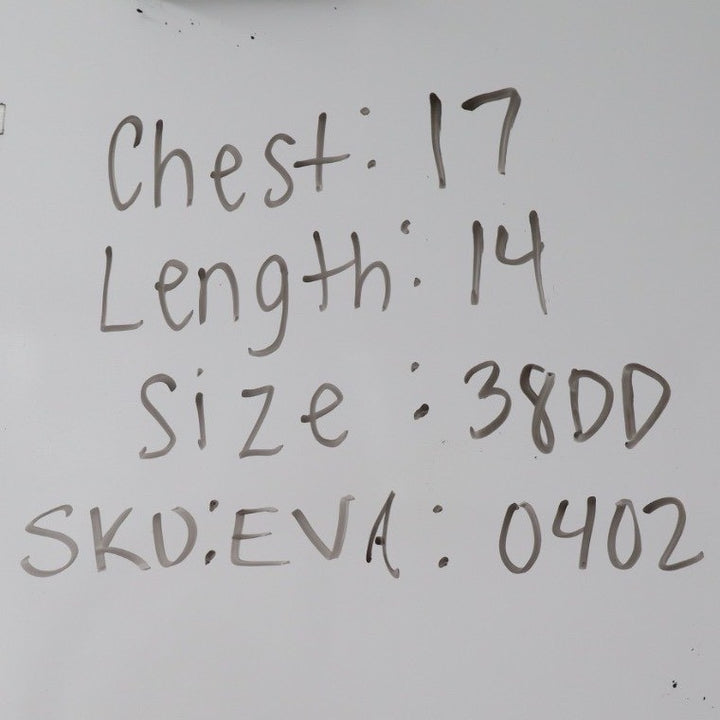 Chest: 17
Length: 14
Size: 38DD
SKU:EVA: 0402